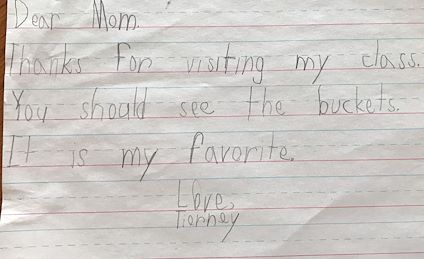 Dear Mom.
Thanks for visiting my class.
You should see the buckets.
It is my favorite.
Love,
Tierney